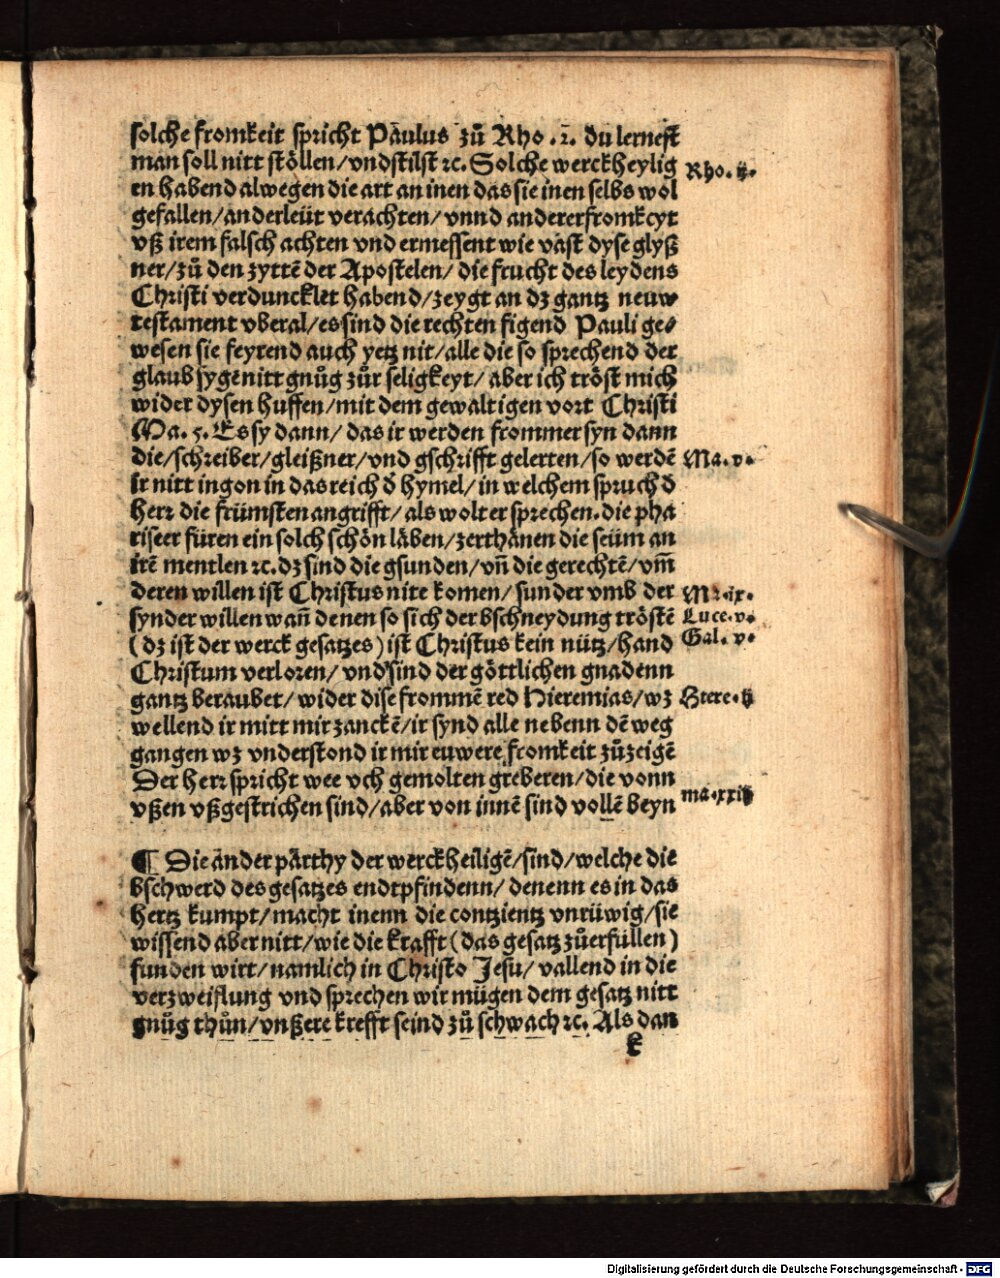 solche fromkeit spricht Paulus zů Rho .2. du lernest
man soll nitt stöllen/vnd stilst ꝛc. Solche werckheylig
Rho. ij.
en habend alwegen die art an inen das sie inen selbs wol
gefallen/anderleüt verachten/vnnd andererfromkeyt
vß irem falsch achten vnd ermessent wie väst dyse glyß
ner/zů den zyttē der Apostelen/die frucht des leydens
Christi verduncklet habend/zeygt an dz gantz neuw
testament vberal/es sind die rechten figend Pauli ge⸗
wesen sie feyrend auch yetz nit/alle die so sprechend der
glaub sygē nitt gnůg zůr seligkeyt/aber ich tröst mich
wider dysen huffen/mit dem gewaltigen vort Christi
Ma. 5. Es sy dann/das ir werden frommer syn dann
die/schreiber/gleißner/vnd gschrifft gelerten/so werdē
Ma. v.
ir nitt ingon in das reich d̄ hymel/in welchem spruch d̄
herr die frümsten angrifft/als wolt er sprechen. die pha
riseer füren ein solch schön läben/zerthänen die seüm an
irē mentlen ꝛc. dz sind die gsunden/vn̄ die gerechtē/vm̄
deren willen ist Christus nite komen/sunder vmb der
Mr. ix.
synder willen wan̄ denen so sich der bschneydung tröstē
Luce. v.
(dz ist der werck gesatzes) ist Christus kein nütz/hand
Gal. v.
Christum verloren/vnd sind der göttlichen gnadenn
gantz beraubet/wider dise frommē red Hieremias/wz
Hiere. ij
wellend ir mitt mir zanckē/ir synd alle nebenn dē weg
gangen wz vnderstond ir mir euwere fromkeit zůzeigē
Der herr spricht wee vch gemolten greberen/die vonn
ma. xxiij
vßen vßgestrichen sind/aber von innē sind vollē beyn
¶ Die ander parthy der werckheiligē/sind/welche die
bschwerd des gesatzes endtpfindenn/denenn es in das
hertz kumpt/macht inenn die contzientz vnrüwig/sie
wissend aber nitt/wie die krafft (das gesatz zůerfüllen)
funden wirt/namlich in Christo Jesu/vallend in die
verzweiflung vnd sprechen wir mügen dem gesatz nitt
gnůg thůn/vnßere krefft seind zů schwach ꝛc. Als dan
k
Digitalisierung gefördert durch die Deutsche Forschungsgemeinschaft - DFG